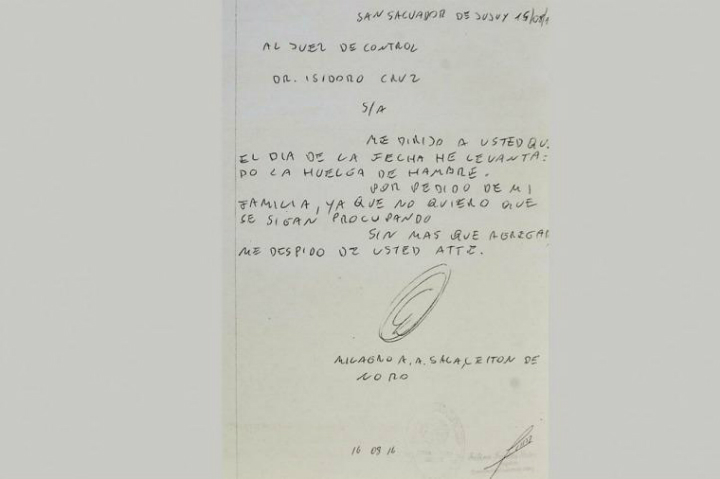 SAN SALVADOR DE JUJUY 15/09/1
AL JUEZ DE CONTROL
DR. ISIDORO CRUZ
S/A
ME DIRIJO A USTED QU.
EL DIA DE LA FECHA HE LEVANTA-
DO LA HUELGA DE HAMBRE.
POR PEDIDO DE MI
FAMILIA, YA QUE NO QUIERO QUE
SE SIGAN PROCUPANDO
SIN MAS QUE AGREGAR
ME DESPIDO DE USTED ATTE.
MILAGRO A. A. SALA, LEITON DE
NORO
16 09 16